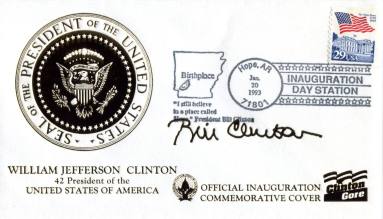 SEAL OF THE PRESIDENT OF THE UNITED STATES
Birthplace
"I still believe
in a place called
Hope." President Bill Clinton
Hope, AR
Jan.
20
1993
71801
INAUGURATION
DAY STATION
29
USA
Bill Clinton
WILLIAM JEFFERSON CLINTON
42 President of the
UNITED STATES OF AMERICA
OFFICIAL INAUGURATION
COMMEMORATIVE COVER
Clinton
Gore